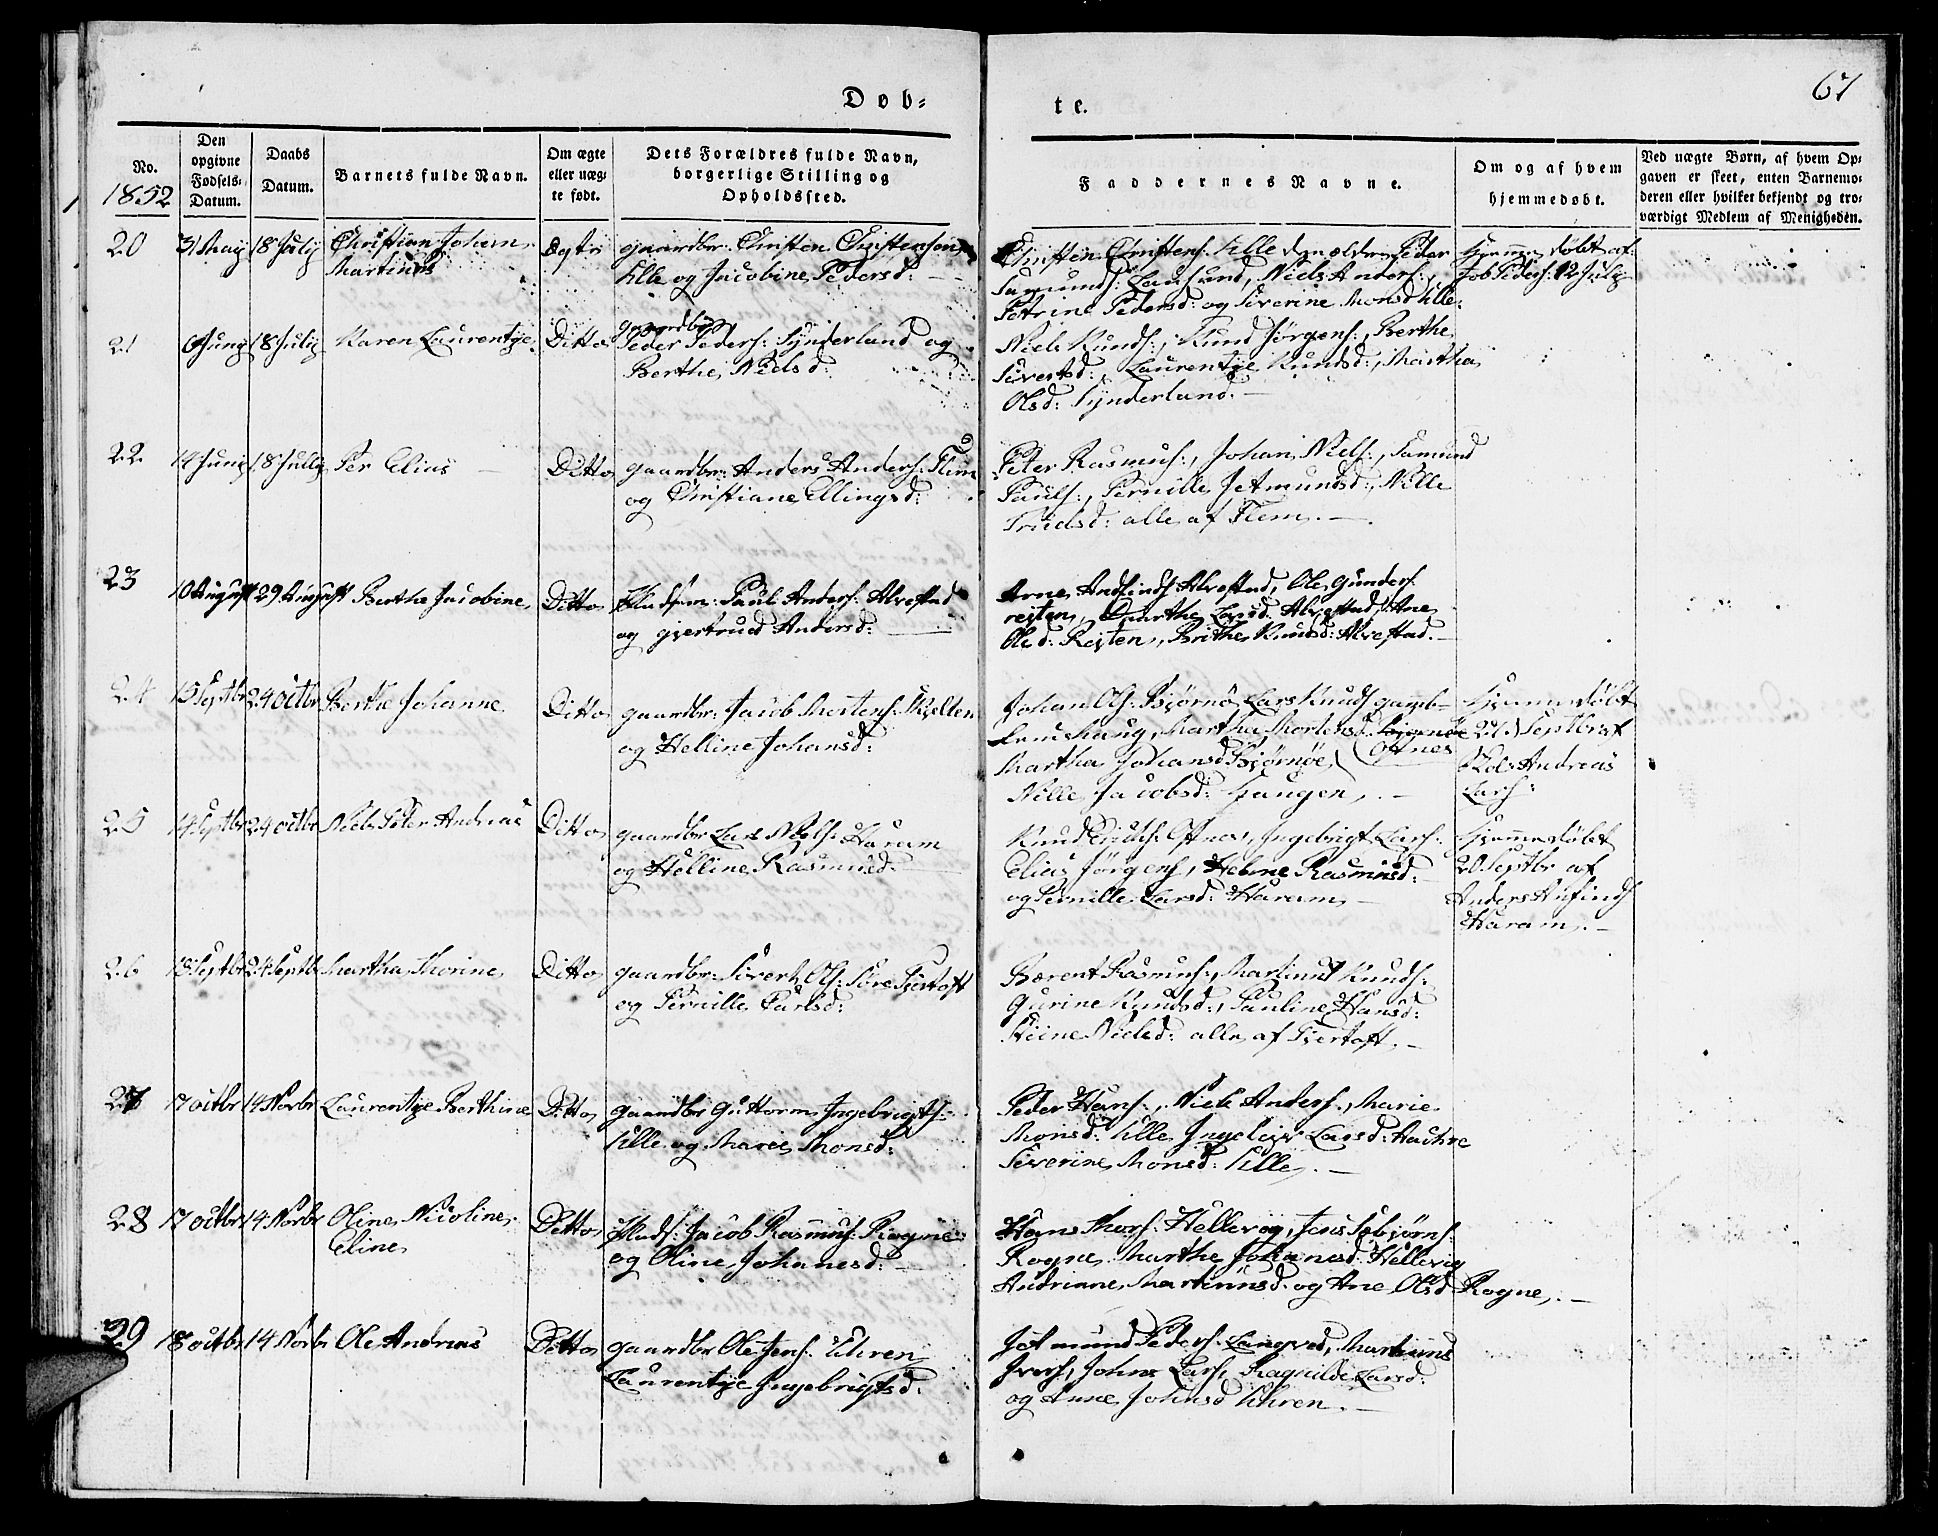 Døb-
te.
67
No.
1852
Den
opgivne
Fødsels-
Datum.
Daabs
Datum.
Barnets fulde Navn.
Om ægte
eller uæg-
te født.
Dets Forældres fulde Navn,
borgerlige Stilling og
Opholdssted.
Faddernes Navne.
Om og af hvem
hjemmedøbt.
Ved uægte Børn, af hvem Op-
gaven er skeet, enten Barnemo-
deren eller hvilket bekjendt og tro-
værdigt Medlem af Menigheden.
20
31 Maij
18 Julij
Christian Johan
Martinus
Ægte
gaardbr: Christen Christensen
Ulle og Jacobine Pedersd:
Christen Christens: Ulle Peder
Samunds: Niels Anders:
Petrine Pedersd: og Siverine Monsd Ulle.
Hjemmedøbt af
Job Peders: 12 Julij
21
6 Junij
18 Julij
Karen Laurentze
Ditto
gaardbr
Peder Peders: Synderland og
Berthe Nielsd:
Niels Knuds:, Knud Jørgens:, Berthe
Sivertsd:, Laurentze Knudsd:, Martha
Olsd: Synderland.
22
14 Junij
18 Julij
Per Elias
Ditto
gaardbr: Anders Anders: Flem
og Christiane Ellingsd:
Peter Rasmus:, Johan Niels:, Samund
Pauls:, Pernille Jetmundsd:, Nille
alle af Flem.
23
10 August
29 August
Berthe Jacobine
Ditto
Huusm: Paul Anders: Alvestad
og Gjertrued Andersd:
Arne Andfinds Alvestad, Ole Gunders:
reiten, Marthe Larsd: Alvestad, Ane
Olsd: Reiten, Brithe Knudsd: Alvestad.
24
15 Septbr
24 octbr
Berthe Johanne
Ditto
gaardbr: Jacob Mortens: Skjelten
og Helline Johansd:
Johan Ols: Bjørnø Lars Knuds gamb-
lemshaug, Martha Mortensd:
Opnes
Martha Johansd Bjørnøe,
Nille Jacobsd: Haugen.
Hjemmedøbt
Septbr af
Andreas
Lars:
25
14 Septbr
24 octbr
Niels Peter Andreas
Ditto
gaardbr Lars Niels: Haram
og Helline Rasmusd:
Knud Ingebrigt Lars:
Elias Jørgens, Helene Rasmusd:
og Pernille Larsd: Haram.
Hjemmedøbt
20 Septbr af
Anders Anfinds
Haram.
26
18 Septbr
24 Septbr
Martha Thorine
Ditto
gaardbr: Sivert Ols: Søre Fjertoft
og Pernille Paulsd:
Bærent Rasmus:, Martinus Knuds:
Gurine Knudsd:, Pauline Hansd:
Nielsd: alle af Fjertoft.
27
17 octbr
14 Novbr
Laurentze Berthine
Ditto
gaardbr Guttorm Ingebrigts:
Ulle og Marie Monsd:
Peder Hans:, Niels Anders:, Marie
Monsd: Ulle Larsd:
Siverine Monsd: Ulle.
28
17 octbr
14 Novbr
Oline Nicoline
Eline
Ditto
Huusm: Jacob Rasmus: Rogne
og Oline Johanesd:
Hans Thors: Hellevig, Jens
Rogne, Marthe Johanesd: Hellevig
Andriane Martinusd: og Ane Olsd Rogne.
29
18 octbr
14 Novbr
Ole Andreas
Ditto
gaardbr Ole Jens: Uhren
Laurentze Ingebrigtsd:
Jetmund Peders: Longved, Martinus
Ivers, Johan Lars, Ragnilde Larsd:
og Anne Johnsd Uhren.